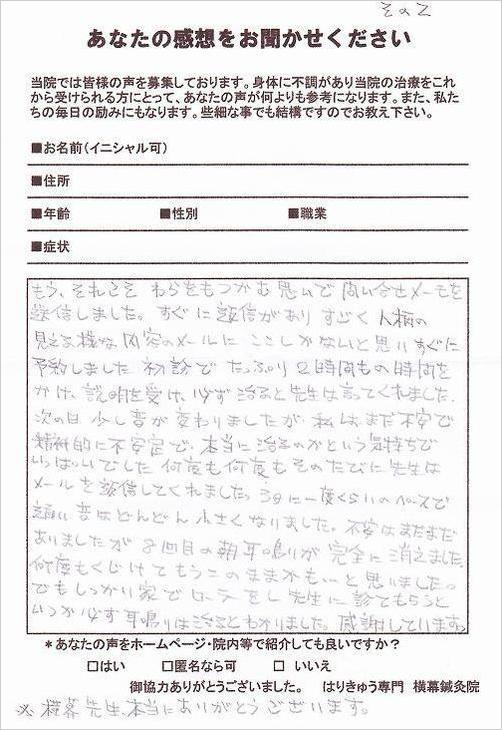 その2
あなたの感想をお聞かせください
当院では皆様の声を募集しております。身体に不調があり当院の治療をこれ
から受けられる方にとって、あなたの声が何よりも参考になります。また、私た
ちの毎日の励みにもなります。些細な事でも結構ですのでお教え下さい。
■お名前(イニシャル可)
■住所
■年齢 ■性別 ■職業
■症状
もう、それこそ わらをもつかむ思いで 問い合せメールを
送信しました。すぐに返信があり すごく 人柄の
見える様な内容のメールに ここしかないと思いすぐに
予約しました 初診で たっぷり2時間もの時間を
かけ、説明を受け、必ず治ると先生は言ってくれました。
次の日 少し音が変わりましたが 私はまだ不安で
精神的に不安定で、本当に治るのかという気持ちで
いっぱいでした 何度も何度もそのたびに先生は
メールを返信してくれました。3日に一度くらいのペースで
通い 音はどんどん小さくなりました。不安はまだまだ
ありましたが 8回目の朝 耳鳴りが完全に消えました
何度もくじけてもうこのままかも…と思いました。
でもしっかり家で ケアをし 先生に診てもらうと
いつか必ず耳鳴りは治るとわかりました。感謝しています。
*あなたの声をホームページ・院内等で紹介しても良いですか?
□はい □匿名なら可 □ いいえ
御協力ありがとうございました。 はりきゅう専門 横幕鍼灸院
※ 横幕先生、本当にありがとうございます。